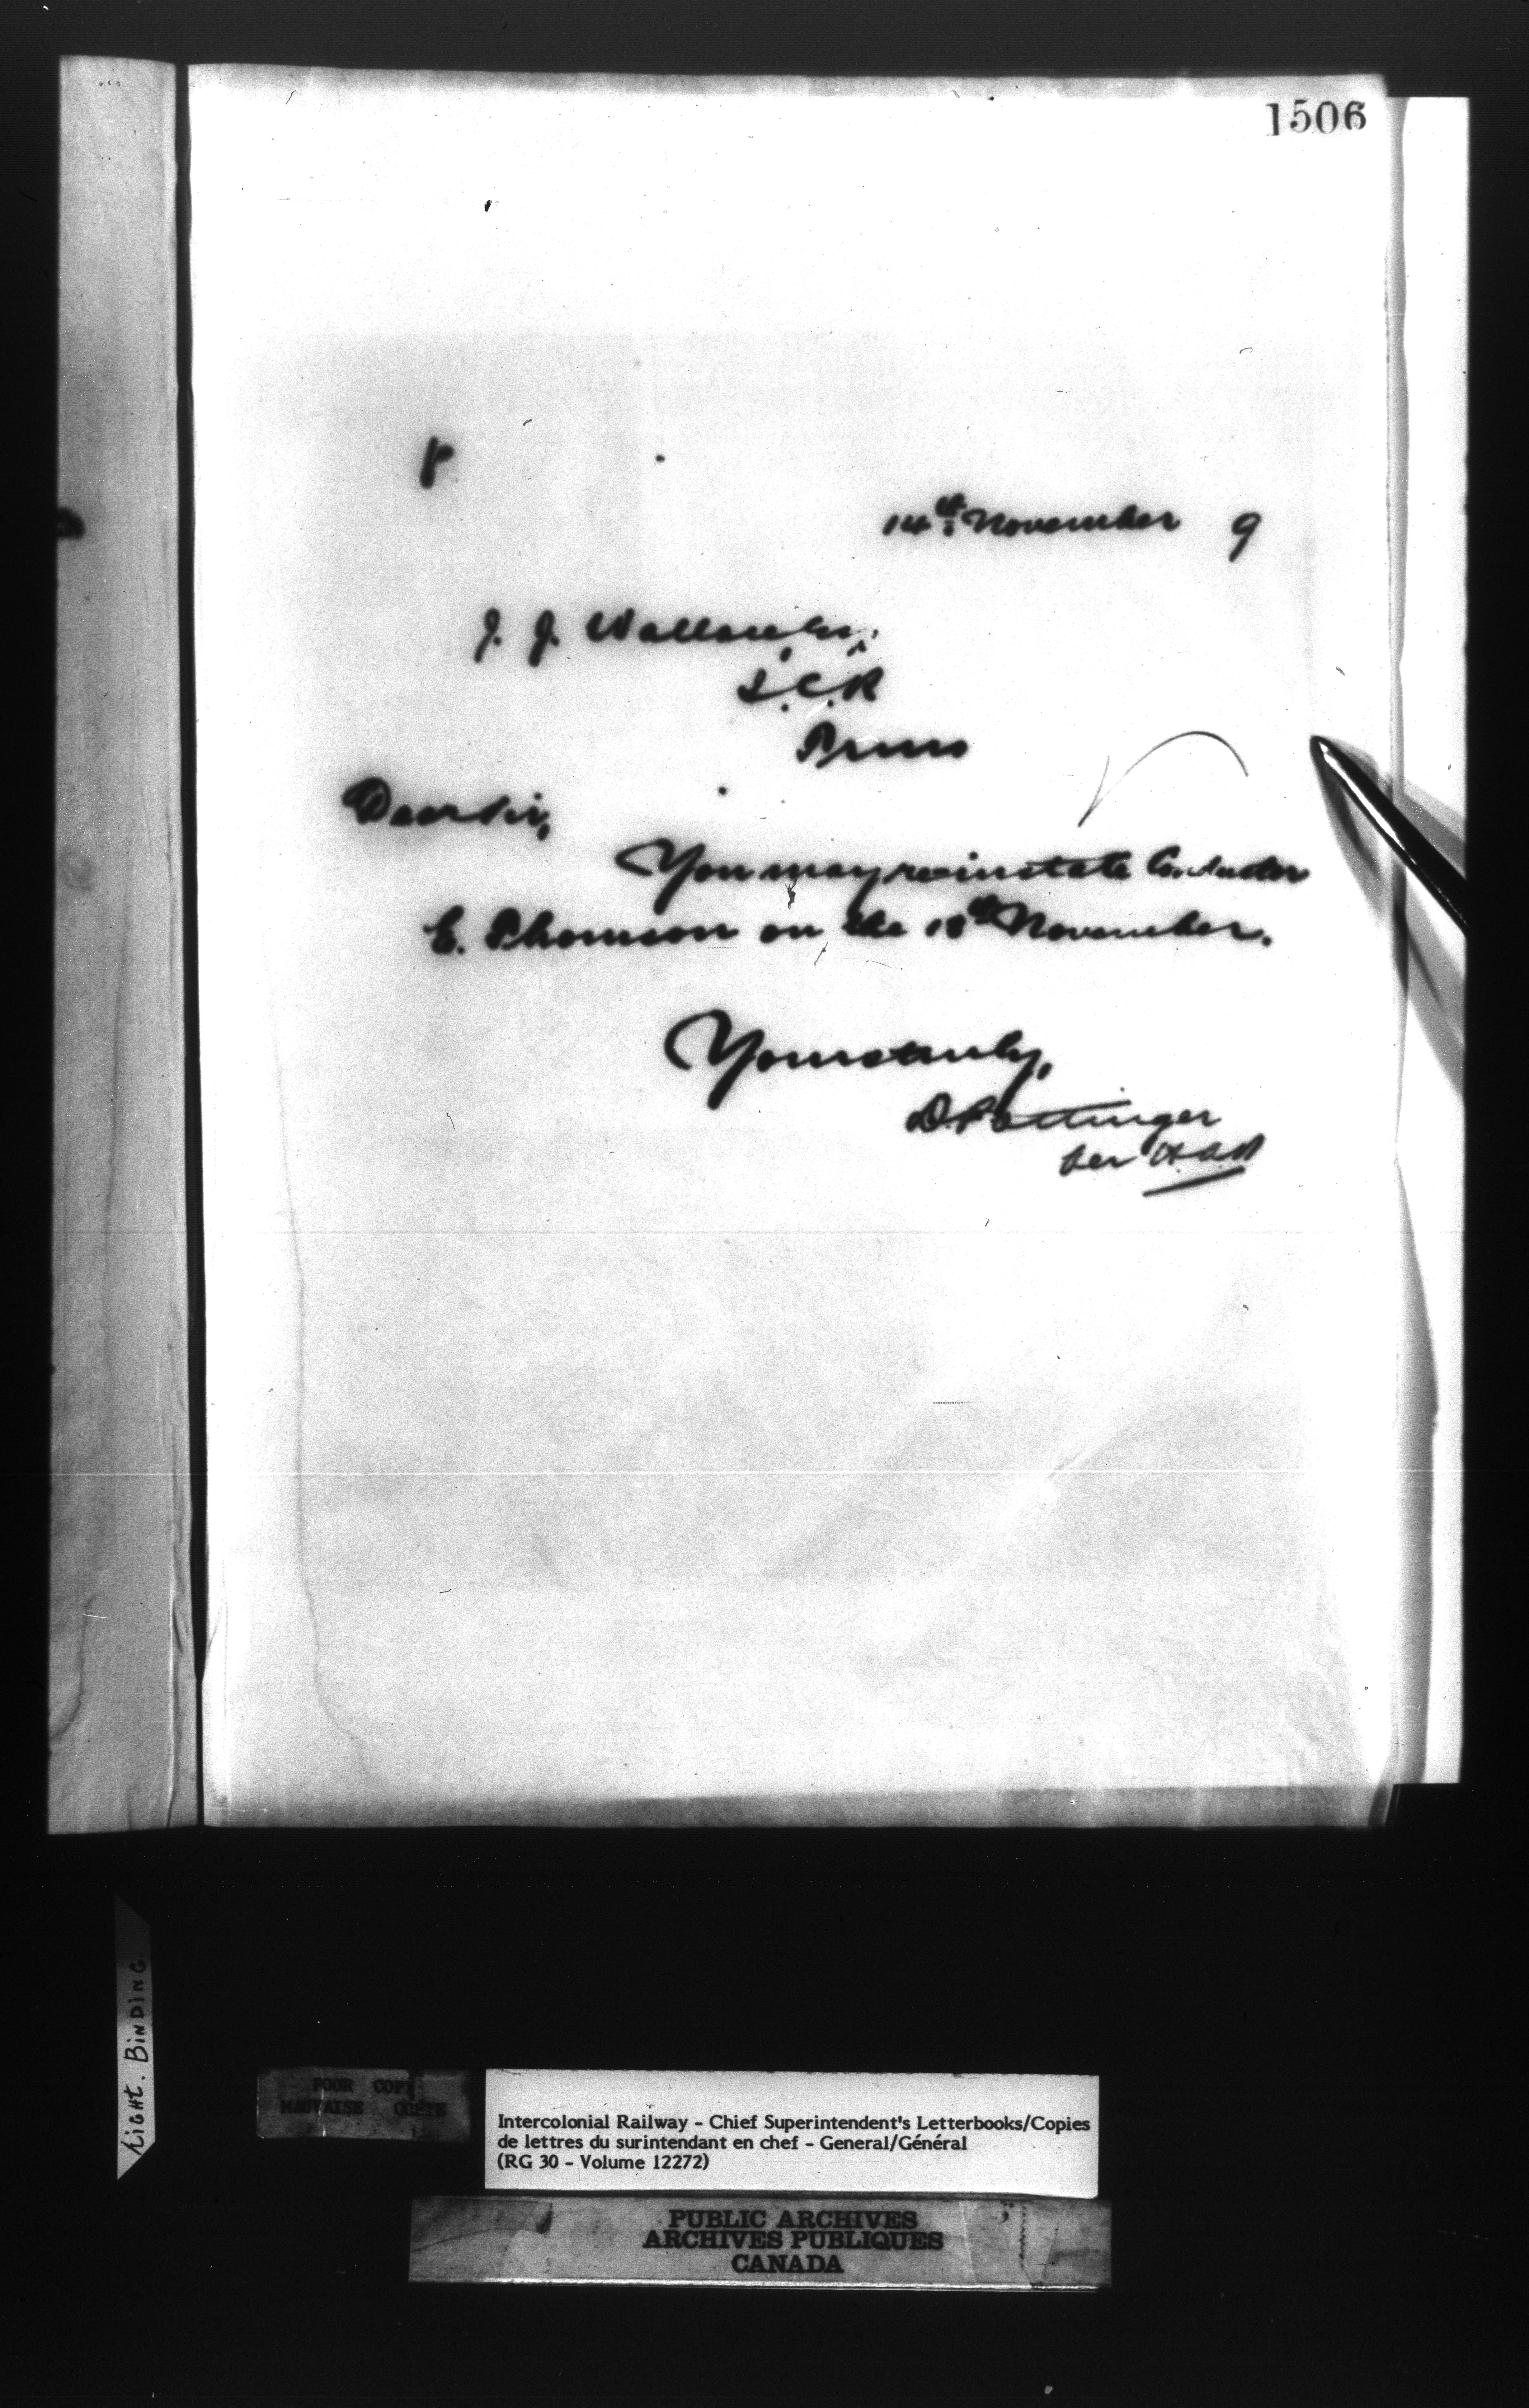 1506
14th November 9
J. J. Wallace Esq.,
I.C.R
Truro
Dear Sir,
You may reinstate Conductor
E. Thomson on the 18th November.
Yours truly,
D. Pottinger
per
Light. BINDING
POOR COPY
MAUVAISE COPIE
Intercolonial Railway - Chief Superintendent's Letterbooks/Copies
de lettres du surintendant en chef - General/Général
(RG 30 - Volume 12272)
PUBLIC ARCHIVES
ARCHIVES PUBLIQUES
CANADA